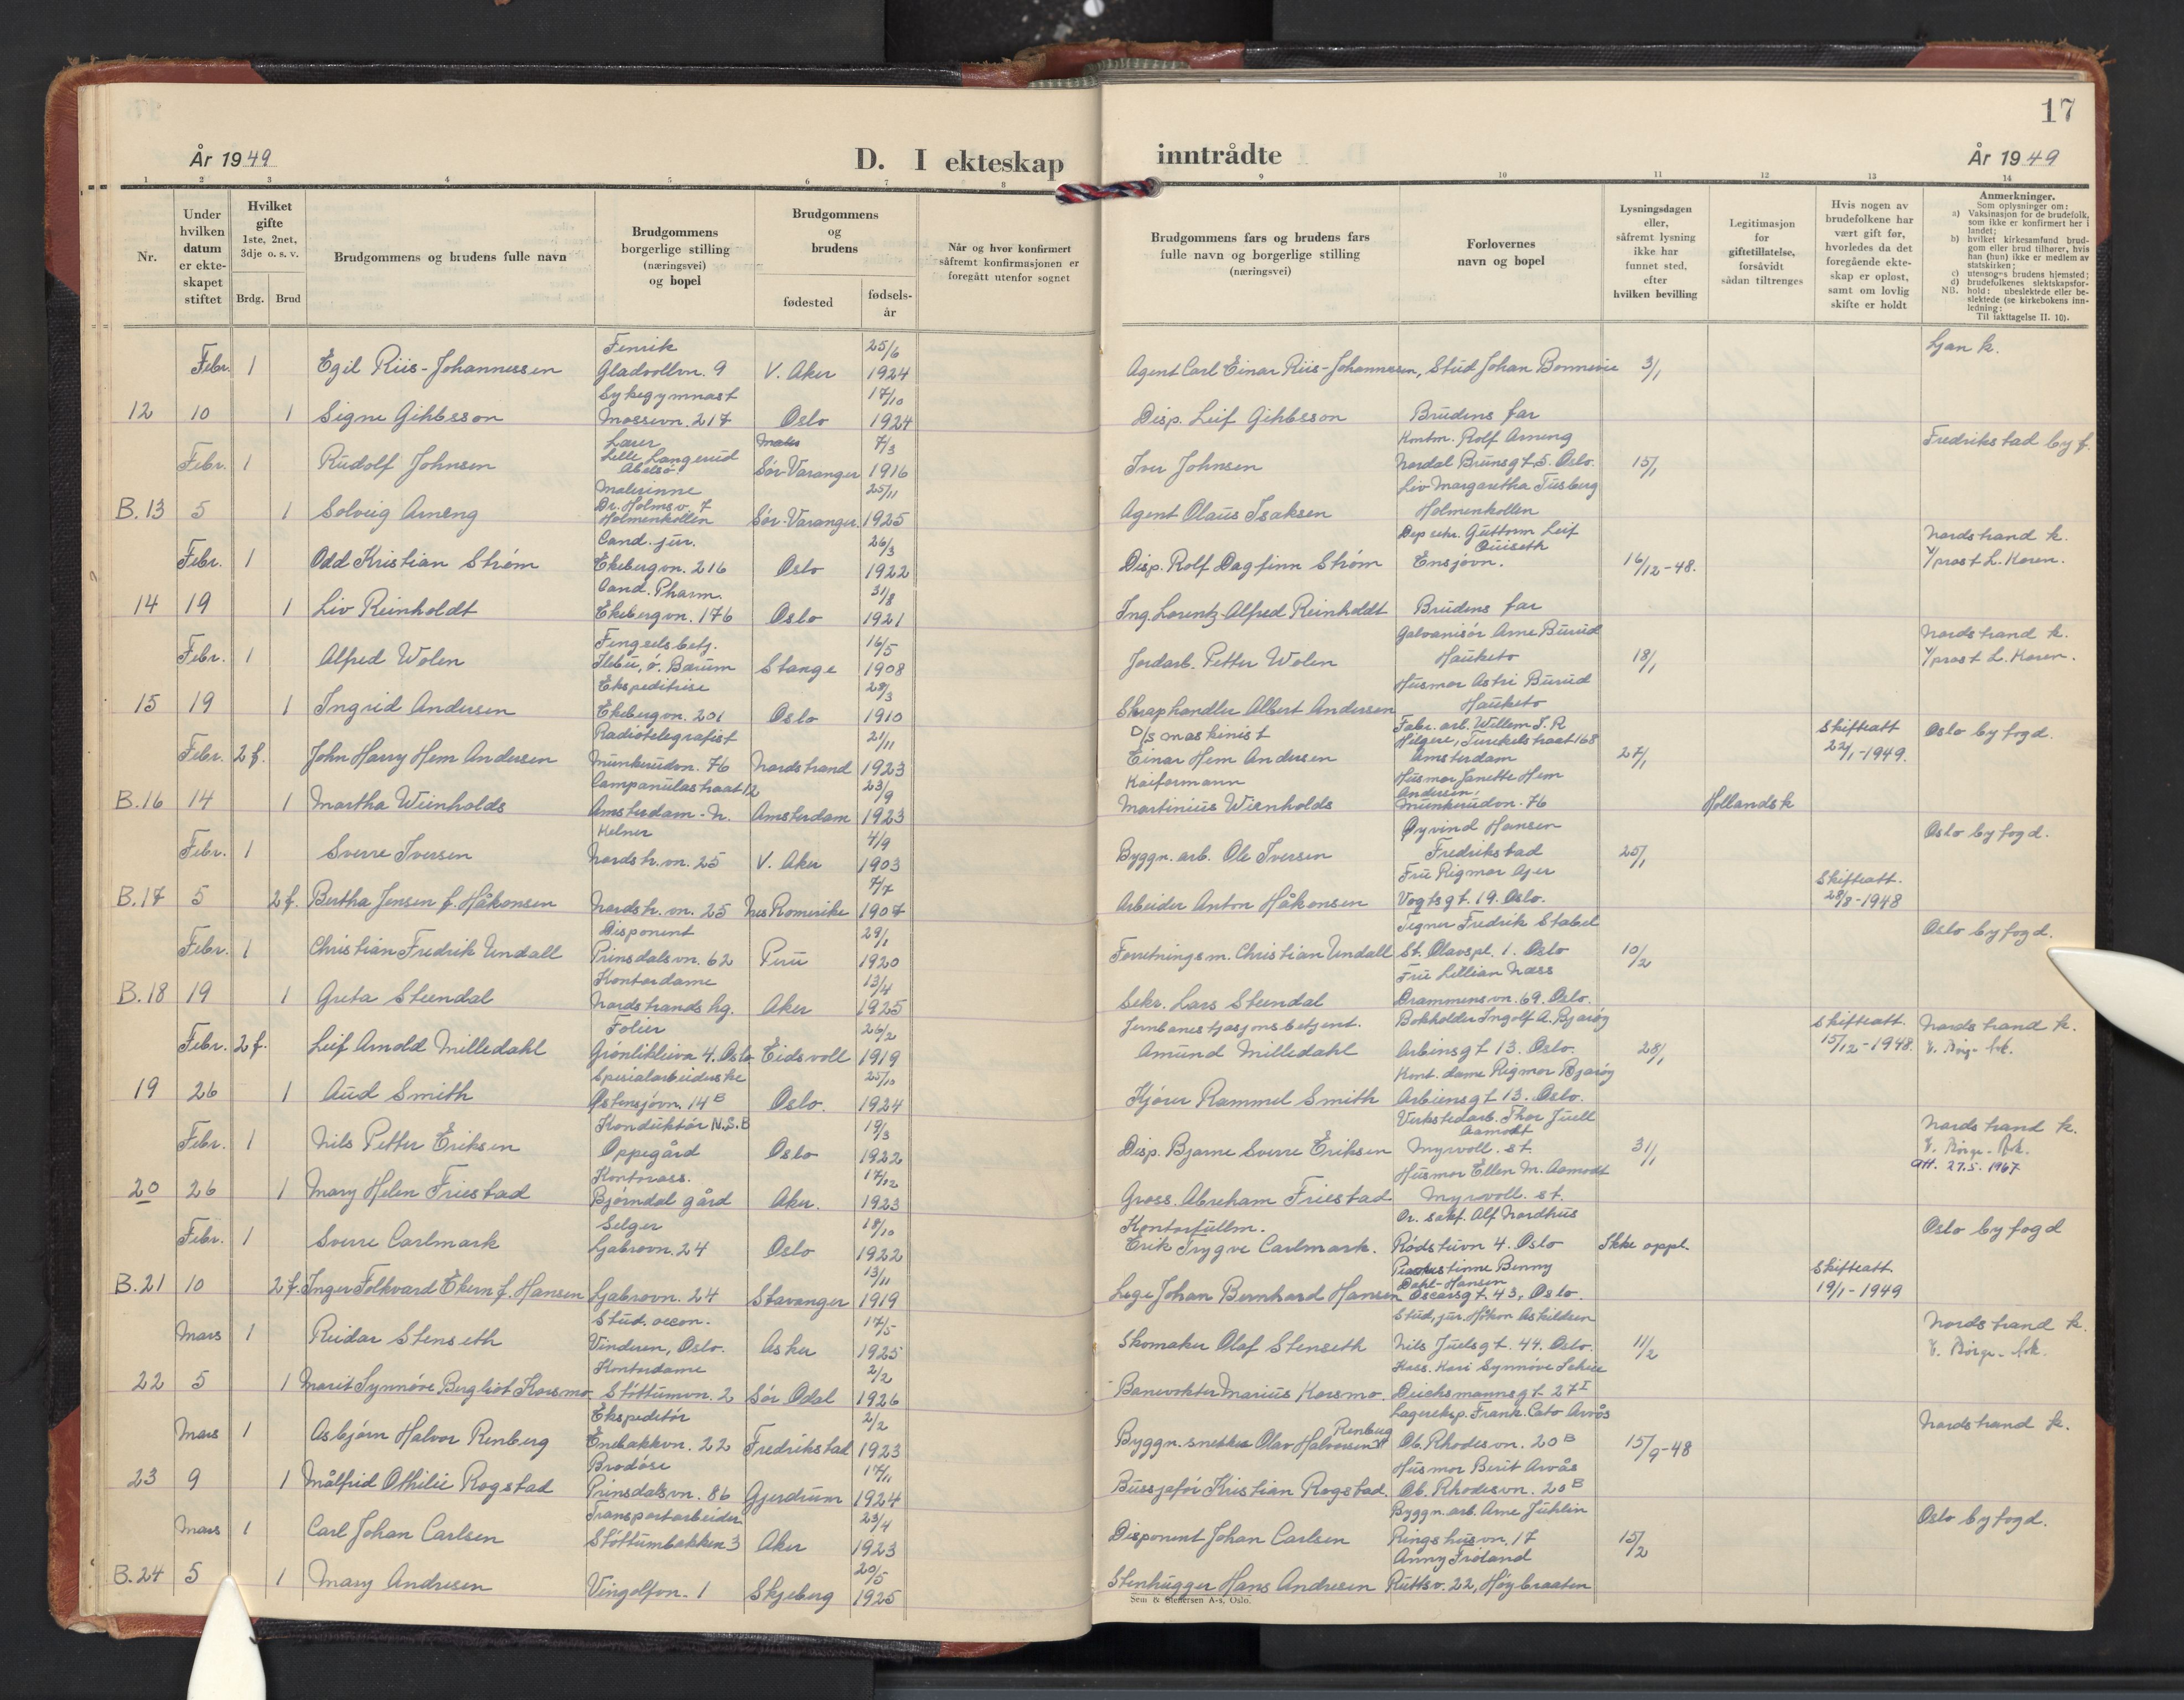 17
År 1949
D. I ekteskap inntrådte
År 1949
1 2 3 4 5 6 7 8 9 10 11 12 13 14
Nr.
Under hvilken datum er ekte-skapet stiftet
Hvilket gifte 1ste, 2net, 3dje o. s. v.
Brdg. Brud
Brudgommens og brudens fulle navn
Brudgommens borgerlige stilling (næringsvei) og bopel
Brudgommens og brudens
fødested
fødsels-år
Når og hvor konfirmert såfremt konfirmasjonen er foregått utenfor sognet
Brudgommens fars og brudens fars fulle navn og borgerlige stilling (næringsvei)
Forlovernes navn og bopel
Lysningsdagen eller, såfremt lysning ikke har funnet sted, efter hvilken bevilling
Legitimasjon for giftetillatelse, forsåvidt sådan tiltrenges
Hvis nogen av brudefolkene har vært gift før, hvorledes da det foregående ekte-skap er opløst, samt om lovlig skifte er holdt
Anmerkninger.
Som oplysninger om:
a) Vaksinasjon for de brudefolk, som ikke er konfirmert her i landet;
b) hvilket kirkesamfund brud-gom eller brud tilhører, hvis han (hun) ikke er medlem av statskirken;
c) utensogns brudens hjemsted;
d) brudefolkenes slektskapsfor-hold: ubeslektede eller be-slektede (se kirkebokens inn-ledning:
NB.
Til iakttagelse II. 10).
Fenrik 25/6 Ljan k.
Febr. 1 Egil Riis-Johannessen Gladvollvn. 9 V. Aker 1924 Agent Carl Einar Riis-Johannessen, Stud Johan Bonnevie 3/1
Sykegymnast 17/10
12 10 1 Signe Gihbsson Mossevn. 217 Oslo 1924 Disp. Leif Gihbsson Brudens far
Lærer 7/3 Kontm. Rolf Ameng Fredrikstad byf.
Febr. 1 Rudolf Johnsen Lille Langerud Abelsø. Sør-Varanger 1916 Iver Johnsen Nordal Brunsgt. 5. Oslo. 15/1
Malerinne 25/11 Liv Margaretha Tusberg
B.13 5 1 Solveig Ameng Dr. Holmsv. 7 Holmenkollen Sør-Varanger 1925 Agent Olaus Isaksen Holmenkollen
Cand. jur. 26/3 Dep sekr. Guttorm Leif Quiseth Nordstrand k.
Febr. 1 Odd Kristian Strøm Ekebergvn. 216 Oslo 1922 Disp. Rolf Dagfinn Strøm Ensjøvn. 16/12-48. v/prost L. Koren.
Cand. Pharm. 31/8
14 19 1 Liv Reinholdt Ekebergvn. 176 Oslo 1921 Ing. Lorentz Alfred Reinholdt Brudens far
Fengselsbetj. 16/5 Galvanisør Arne Burud Nordstrand k.
Febr. 1 Alfred Wolen Ilebu, ø. Bærum Stange 1908 Jordarb. Petter Wolen Hauketo 18/1 v/prost L. Koren.
Ekspeditrise 29/3 Husmor Astri Burud
15 19 1 Ingrid Andersen Ekebergvn. 201 Oslo 1910 Skraphandler Albert Andersen Hauketo
Radiotelegrafist 21/11 D/S maskinist Fabr. arb. Willem J. R. Skifteatt Oslo byfogd.
Febr. 2f. John Harry Hem Andersen Munkerudvn. 76 Nordstrand 1923 Einar Hem Andersen Amsterdam 27/1 22/1-1949.
Campanulastraat 12 23/9 Kaiformann Husmor Janette Hem Andersen,
B.16 14 1 Martha Wienholds Amsterdam-N. Amsterdam 1923 Martinius Wienholds Munkerudvn. 76 Hollandsk
Kelner 4/9 Øyvind Hansen Oslo byfogd.
Febr. 1 Sverre Iversen Nordstr. vn. 25 V. Aker 1903 Byggn. arb. Ole Iversen Fredrikstad 25/1
7/7 Fru Rigmor Ajer Skifteatt.
B.17 5 2f. Bertha Jensen f. Håkonsen Nordstr. vn. 25 Nes Romerike 1907 Arbeider Anton Håkonsen Vogtsgt. 19. Oslo. 28/8-1948
Disponent 29/1 Tegner Fredrik Stabel Oslo byfogd.
Febr. 1 Christian Fredrik Undall Prinsdalsvn. 62 Peru 1920 Forretningsm. Christian Undall St. Olavspl. 1. Oslo 10/2
Kontordame 13/4 Fru Lillian Næss
B.18 19 1 Greta Steendal Nordstrands hg. Aker 1925 Sekr. Lars Steendal Drammensvn. 69. Oslo.
Folier 26/2 Jernbanestasjonsbetjent. Bokholder Ingolf A. Bjarøy Skifteatt. Nordstrand k.
Febr. 2f. Leif Arnold Milledahl Grønlikleiva 4. Oslo Eidsvoll 1919 Amund Milledahl Arbiensgt 13. Oslo. 28/1 15/12-1948.
Spesialarbeiderske 25/10 Kont. dame Rigmor Bjarøy
19 26 1 Aud Smith Østensjøvn. 14 B Oslo. 1924 Kjører Rammel Smith Arbiensgt 13. Oslo.
Konduktør N.S.B 19/3 Verkstedarb. Thor Juell Aamodt Nordstrand k.
Febr. 1 Nils Petter Eriksen Oppegård Oslo 1922 Disp. Bjarne Sverre Eriksen Myrvoll. st. 31/1
Kontorass. 17/12 Husmor Ellen M. Aamodt att. 27.5. 1967
20 26 1 Mary Helen Friestad Bjørndal gård Aker. 1923 Gross. Abraham Friestad Myrvoll. st.
Selger 18/10 Kontorfullm. Or. sakf. Alf Nordhus Oslo byfogd
Febr. 1 Sverre Carlmark Ljabrovn. 24 Oslo 1922 Erik Trygve Carlmark. Rødstuvn 4. Oslo Ikke oppl.
13/11 Benny Dahl-Hansen Skifteatt.
B.21 10 2f. Inger Folkvard Ekern f. Hansen Ljabrovn. 24 Stavanger 1919 Lege Johan Bernhard Hansen Oscarsgt. 43, Oslo. 19/1-1949
Stud. oecon. 17/5 Stud. jur. Håkon Askildsen Nordstrand k.
Mars 1 Reidar Stenseth Vinderen, Oslo. Asker 1925 Skomaker Olaf Stenseth Nils Juelsgt. 44. Oslo. 11/2
Kontordame 2/2 Kass. Kari Synnøve
22 5 1 Marit Synnøve Bergliot Korsmo Støttumvn. 2 Sør Odal 1926 Banevokter Marius Korsmo. Deichmannsgt 27 I
Ekspeditør 2/2 Renberg Lagereksp. Frank. Cato Arvås Nordstrand k.
Mars 1 Asbjørn Halvor Renberg Enebakkvn. 22 Fredrikstad 1923 Byggn. snekker Olav Halvorsen Ob. Rhodesvn. 20 B 15/9-48
Brodøse 17/11 Husmor Berit Arvås
23 9 1 Målfrid Othilie Rogstad Prinsdalsvn. 86 Gjerdrum 1924 Bussjafør Kristian Rogstad. Ob. Rhodesvn. 20 B
Transportarbeider 23/4 Byggn. arb. Arne Juhlin Oslo byfogd.
Mars 1 Carl Johan Carlsen Støttumbakken 3 Aker 1923 Disponent Johan Carlsen Ringshusvn. 17 15/2
20/5 Anny Frøland
B.24 5 1 Mary Andresen Vingolfvn. 1 Skjeberg 1925 Stenhugger Hans Andresen Ruttsv. 22, Høybraaten
Sem & Stenersen A-s, Oslo.